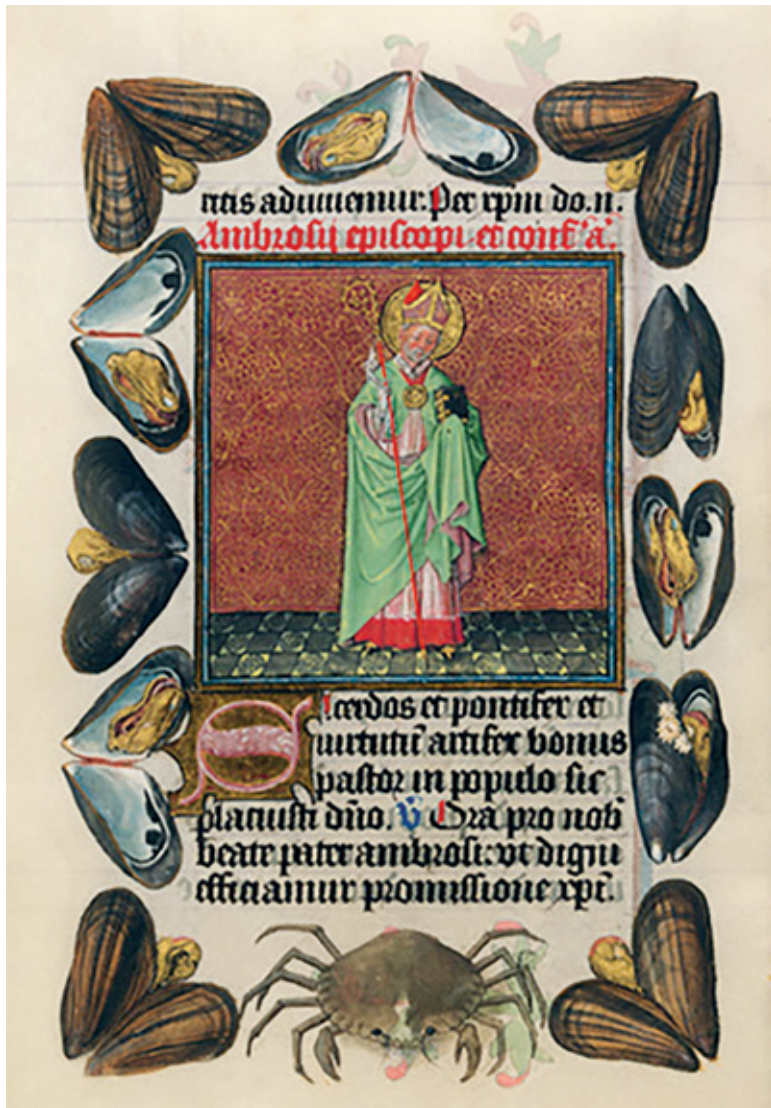 titis adiuuemur. Per xp̄m do.n.
Ambrosij episcopi et conf. a.
Sacerdos et pontifex et
uirtutū artifex bonus
pastor in populo sic
placuisti dn̄o. V Ora pro nob̄
beate pater ambrosi: vt digni
efficiamur promissione xp̄i.